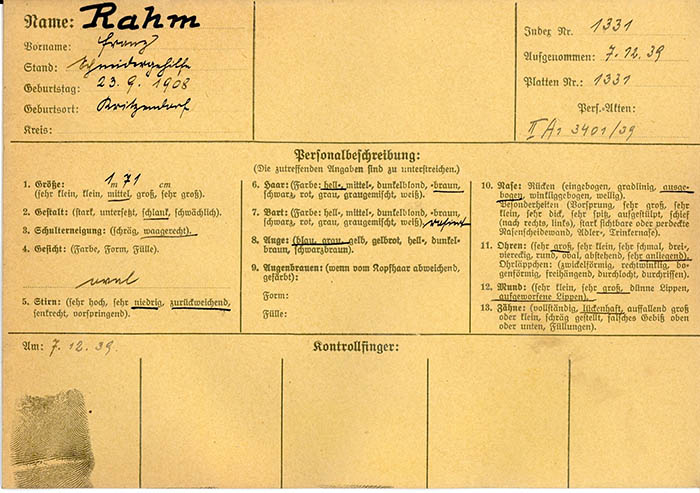 Name: Rahm
Vorname: Franz
Stand: Schneidergehilfe
Geburtstag: 23. 9. 1908
Geburtsort: Kritzendorf
Kreis:
Index Nr. 1331
Aufgenommen: 7. 12. 39
Platten Nr.: 1331
Pers.-Akten:
II A1 3401/39
Personalbeschreibung:
(Die zutreffenden Angaben sind zu unterstreichen.)
1. Größe: 1 m 71 cm
(sehr klein, klein, mittel, groß, sehr groß).
2. Gestalt: (stark, untersetzt, schlank, schwächlich).
3. Schulterneigung: (schräg, waagerecht).
4. Gesicht: (Farbe, Form, Fülle).
oval
5. Stirn: (sehr hoch, sehr niedrig, zurückweichend,
senkrecht, vorspringend).
6. Haar: (Farbe: hell-, mittel-, dunkelblond, -braun,
schwarz, rot, grau, graugemischt, weiß).
7. Bart: (Farbe: hell-, mittel-, dunkelblond, -braun,
schwarz, rot, grau, graugemischt, weiß). rasiert
8. Auge: (blau, grau, gelb, gelbrot, hell-, dunkel-
braun, schwarzbraun).
9. Augenbrauen: (wenn vom Kopfhaar abweichend,
gefärbt):
Form:
Fülle:
10. Nase: Rücken (eingebogen, gradlinig, ausge-
bogen, winkliggebogen, wellig).
Besonderheiten (Vorsprung, sehr groß, sehr
klein, sehr dick, sehr spitz, aufgestülpt, schief
(nach rechts, links), stark sichtbare oder verdeckte
Nasenscheidewand, Adler-, Trinkernase).
11. Ohren: (sehr groß, sehr klein, sehr schmal, drei-,
viereckig, rund, oval, abstehend, sehr anliegend).
Ohrläppchen: (zwickelförmig, rechtwinklig, bo-
genförmig, freihängend, durchlocht, durchrissen).
12. Mund: (sehr klein, sehr groß, dünne Lippen,
aufgeworfene Lippen).
13. Zähne: (vollständig, lückenhaft, auffallend groß
oder klein, schräg gestellt, falsches Gebiß oben
oder unten, Füllungen).
Am: 7. 12. 39.
Kontrollfinger: